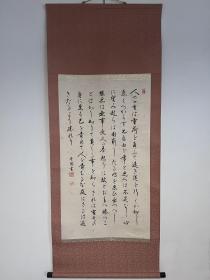 人の一生は重荷を負て遠き道を行くが如し
急ぐべからず不自由を常と思へば不足なし心
に望み起らば困窮したる時を思ひ出すべし
堪忍は無事長久の基怒は敵とおもへ勝つこ
とばかり知りて負くる事を知らざれば害その
身に至る己を責めて人を責むるな及ばざるは過
ぎたるより勝れり